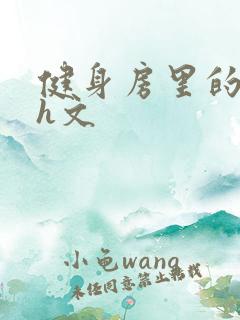 健身房里的
h文
小龟wang
未经同意禁止转载